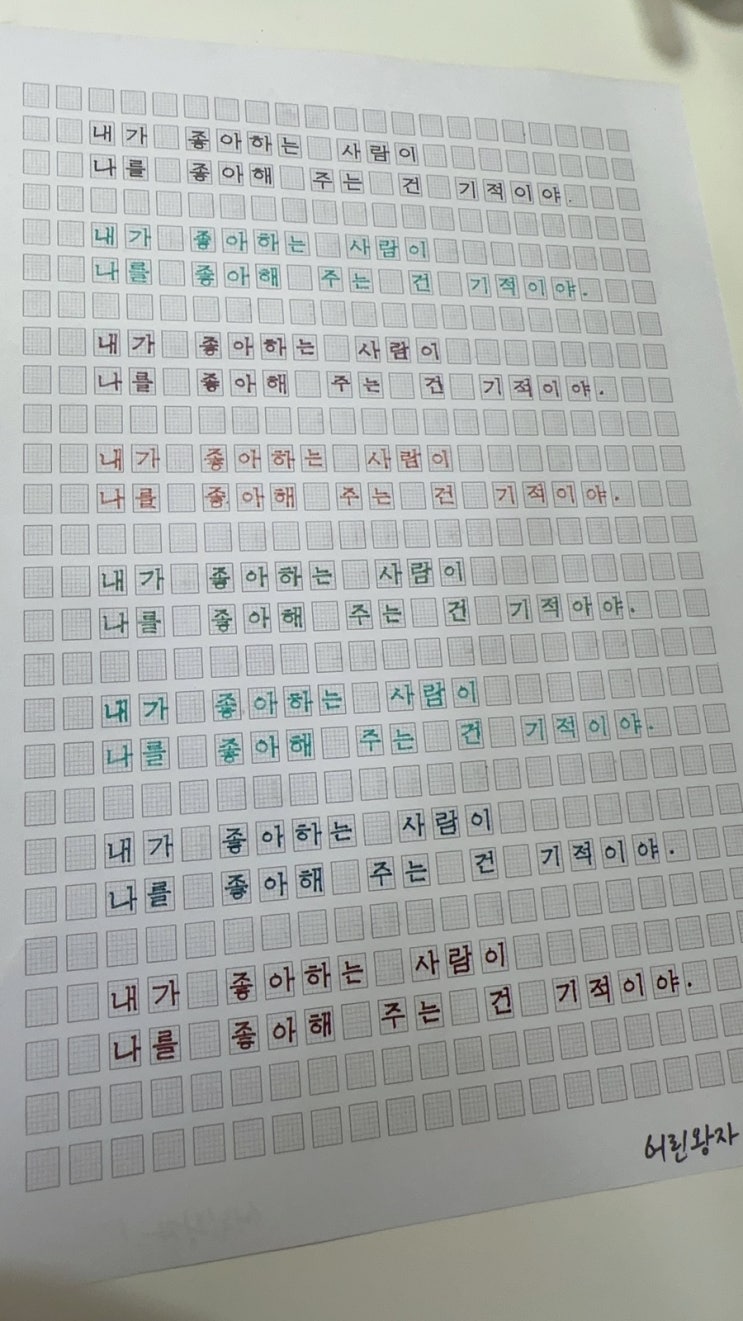 내가 좋아하는 사람이
나를 좋아해 주는 건 기적이야.
내가 좋아하는 사람이
나를 좋아해 주는 건 기적이야.
내가 좋아하는 사람이
나를 좋아해 주는 건 기적이야.
내가 좋아하는 사람이
나를 좋아해 주는 건 기적이야.
내가 좋아하는 사람이
나를 좋아해 주는 건 기적아야.
내가 좋아하는 사람이
나를 좋아해 주는 건 기적이야.
내가 좋아하는 사람이
나를 좋아해 주는 건 기적이야.
내가 좋아하는 사람이
나를 좋아해 주는 건 기적이야.
어린왕자